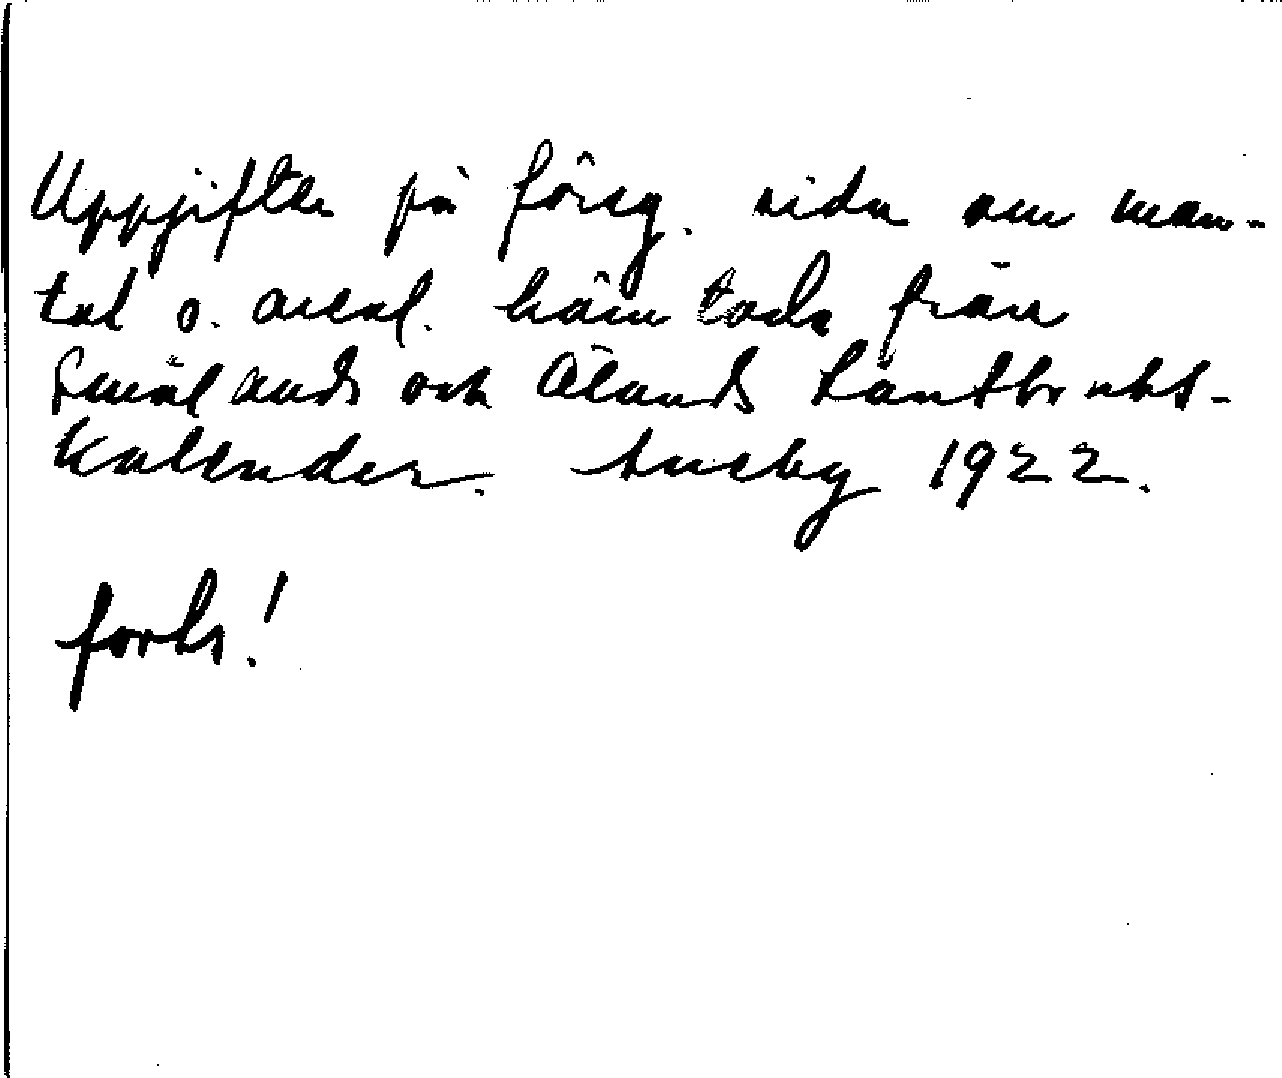 Uppgifter på föreg. sida om man-
tal o. areal. hämtade från
Smålands och Ölands Lantbruks-
Kalender. Aneby 1922.
forts!